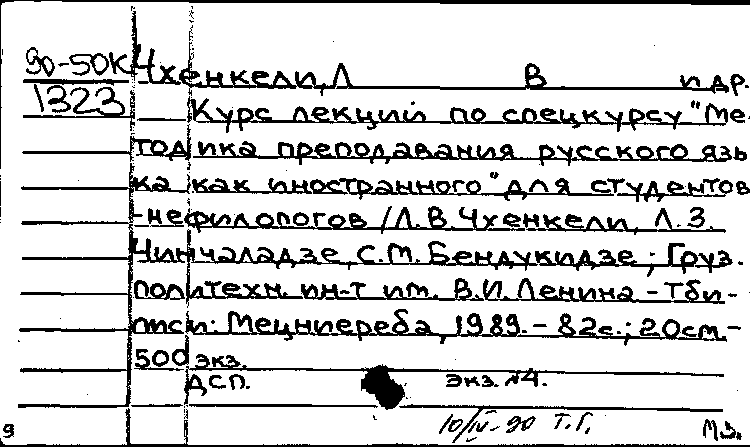 90-50К
1323
Чхенкели, Л В и др.
Курс лекций по спецкурсу "Ме-
тодика преподавания русского язы-
ка как иностранного" для студентов
-нефилологов / Л.В. Чхенкели, Л.З.
Чинчаладзе, С.М. Бендукидзе; Груз.
политехн. ин-т им. В.И. Ленина - Тби-
лиси: Мецниереба, 1989. - 82с.; 20см. -
500 экз.
ДСП. экз. №4.
10/IV-90 Т.Г.
9